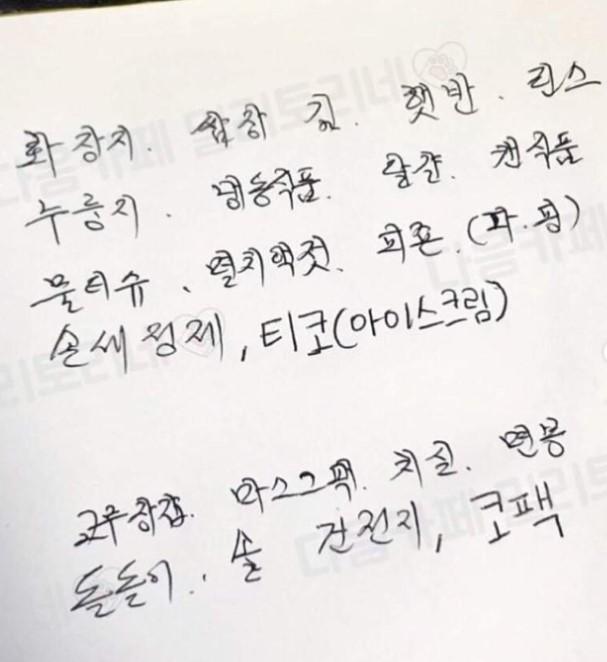 화장지. 쌈장 김. 햇반. 린스
누룽지. 냉동식품. 달걀. 캔식품
물티슈. 멸치액젓. 피죤.(파.핑)
손세정제, 티코(아이스크림)
고무장갑. 마스크팩. 치실. 면봉
돌돌이. 솔 건전지, 코팩
다음카페 밀리토리네